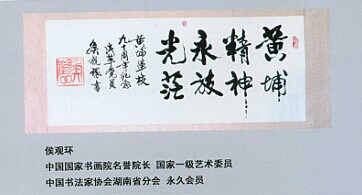 黄埔
精神
永放
光茫
黄埔军校
九十周年纪念
侯观环书
侯观环
中国国家书画院名誉院长 国家一级艺术委员
中国书法家协会湖南省分会 永久会员